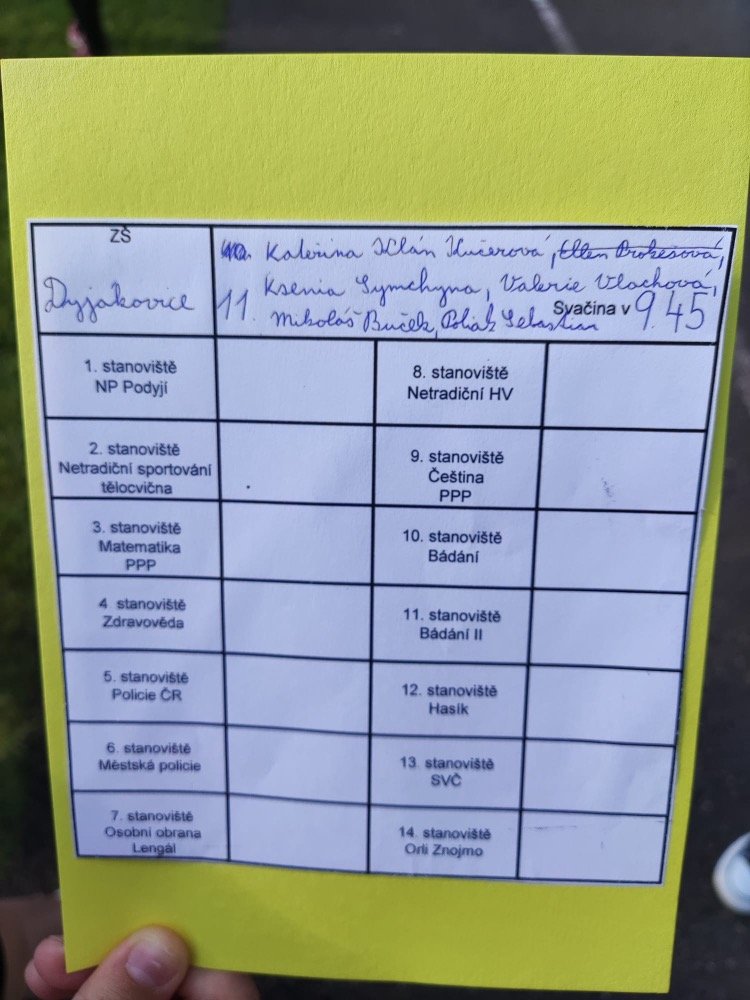 ZŠ
Dyjakovice
Kateřina Klán Kučerová, Ellen Prokešová,
11. Ksenia Symchyna, Valerie Vlachová,
Mikoláš Buček, Poliak Sebastian
Svačina v 9.45
1. stanoviště
NP Podyjí
8. stanoviště
Netradiční HV
2. stanoviště
Netradiční sportování
tělocvična
9. stanoviště
Čeština
PPP
3. stanoviště
Matematika
PPP
10. stanoviště
Bádání
4 stanoviště
Zdravověda
11. stanoviště
Bádání II
5. stanoviště
Policie ČR
12. stanoviště
Hasík
6. stanoviště
Městská policie
13. stanoviště
SVČ
7. stanoviště
Osobní obrana
Lengál
14. stanoviště
Orli Znojmo